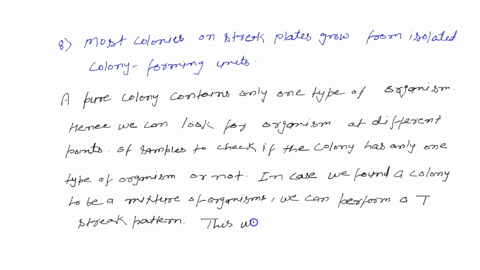 8) Most colonies on streak plates grow from isolated
colony-forming units.
A pure colony contains only one type of organism.
Hence we can look for organism at different
points. of samples to check if the colony has only one
type of organism or not. In case we found a colony
to be a mixture of organisms, we can perform a T
streak pattern. This w